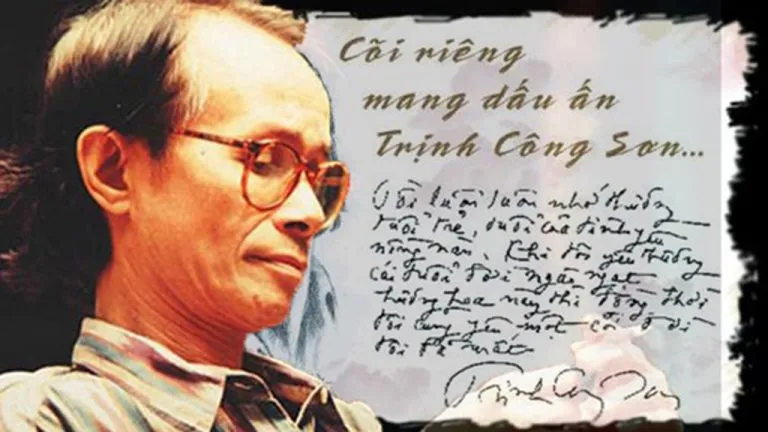 Cõi riêng
mang dấu ấn
Trịnh Công Sơn...
Tôi luôn luôn nhớ thương
tuổi trẻ, tuổi của tình yêu
nồng nàn. Khi tôi yêu thương
cái tuổi đời ngào ngạt
hương hoa này thì đồng thời
tôi cũng yêu một cõi
tôi đã mất
Trịnh Công Sơn